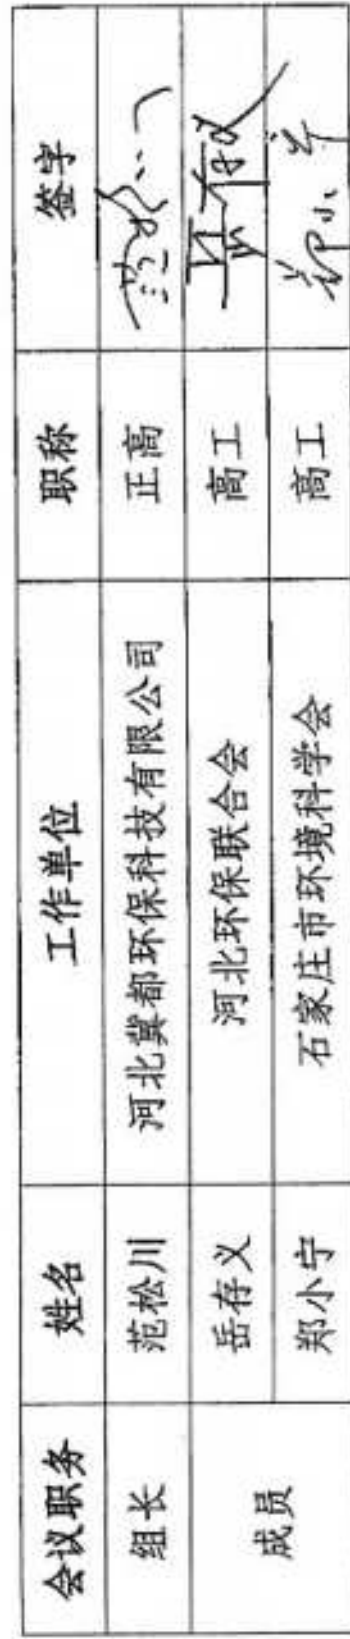 会议职务 姓名 工作单位 职称 签字
组长 范松川 河北冀都环保科技有限公司 正高
成员 岳存义 河北环保联合会 高工 岳存义
郑小宁 石家庄市环境科学学会 高工 郑小宁